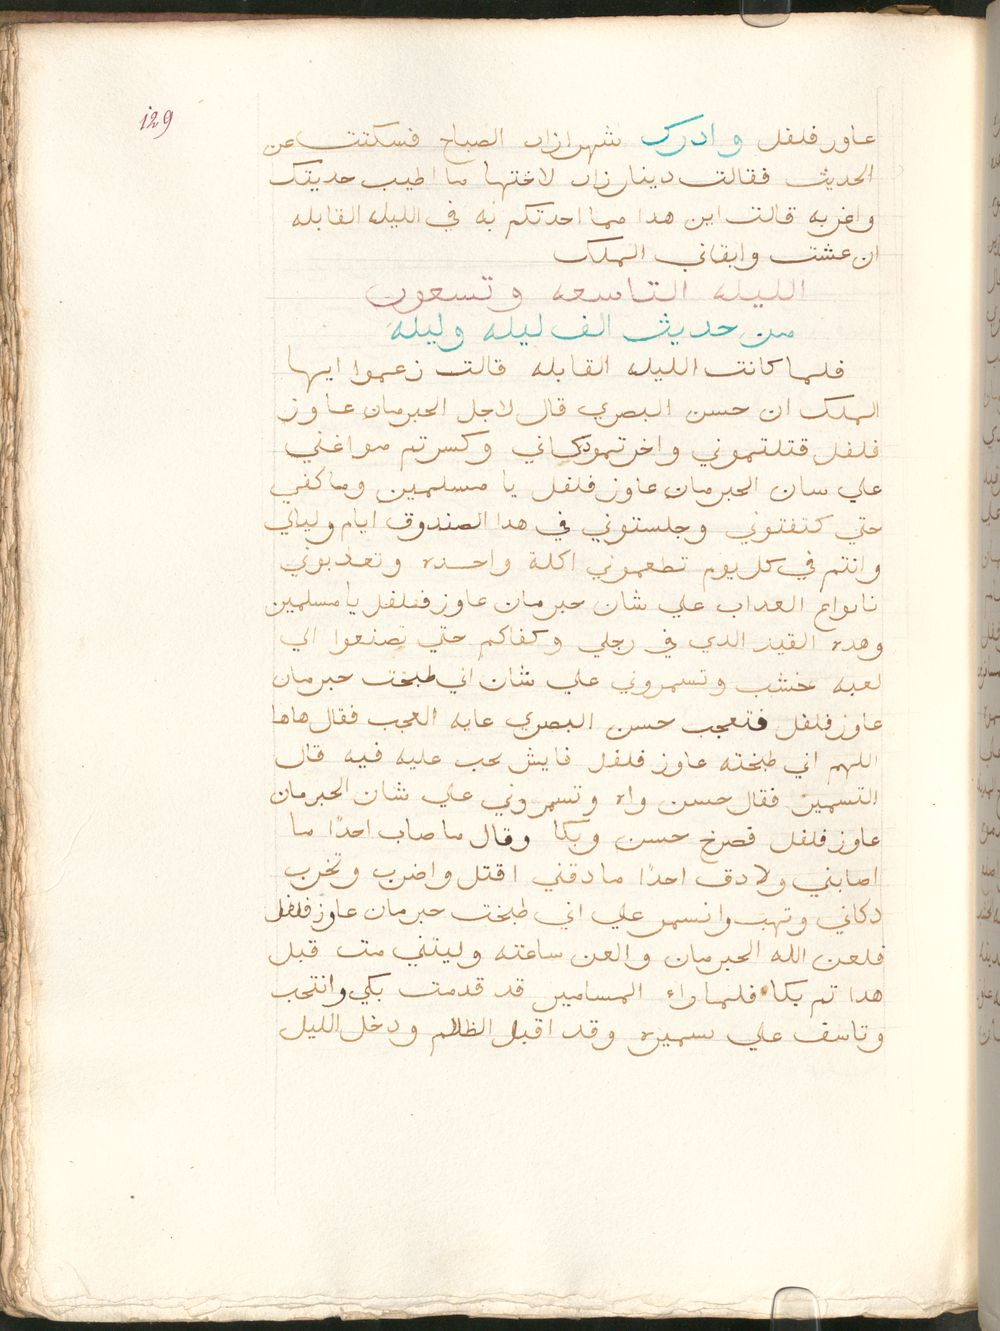 129
عاوز فلفل وادرك شهرازاد الصباح فسكتت عن
الحديث فقالت دينارزاد لاختها ما اطيب حديتك
واغربه قالت اين هدا مما احدتكم به في الليله القابله
ان عشت وابقاني الملك
الليله التاسعه وتسعون
من حديث الف ليله وليله
فلما كانت الليله القابله قالت زعموا ايها
الملك ان حسن البصري قال لاجل الحبرمان عاوز
فلفل قتلتموني واخرتمو دكاني وكسرتم مواعني
علي سان الحبرمان عاوز فلفل يا مسلمين وما كفي
حتي كتفتوني وجلستوني في هدا الصندوق ايام وليالي
وانتم في كل يوم تطعموني اكلة واحده وتعدبوني
نانواع العداب علي شان حبرمان عاوز فلفل يا مسلمين
وهده القيد الدي في رجلي وكفاكم حتي تصنعوا الي
لعبه خشب وتسمروني علي شان اني طبخت حبرمان
عاوز فلفل فتعجب حسن البصري عايه العجب فقال هاها
اللهم اني طبخته عاوز فلفل فايش يحب عليه فيه قال
التسمير فقال حسن واه وتسمروني علي شان الحبرمان
عاوز فلفل فصرخ حسن وبكا وقال ما صاب احدًا ما
اصابني ولا دق احدًا ما دقني اقتل واضرب وتخرب
دكاني وتهب وانسمر علي اني طبخت حبرمان عاوز فلفل
فلعن الله الحبرمان والعن ساعته وليتني مت قبل
هدا تم بكا فلما راء المسامير قد قدمت بكي وانتحب
وتاسف علي تسميره وقد اقبل الظلام ودخل الليل